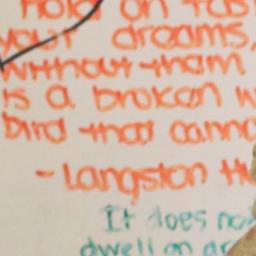 Hold on fas
your dreams,
without them
is a broken w
bird that canno
- Langston Hu
It does no
dwell on dr